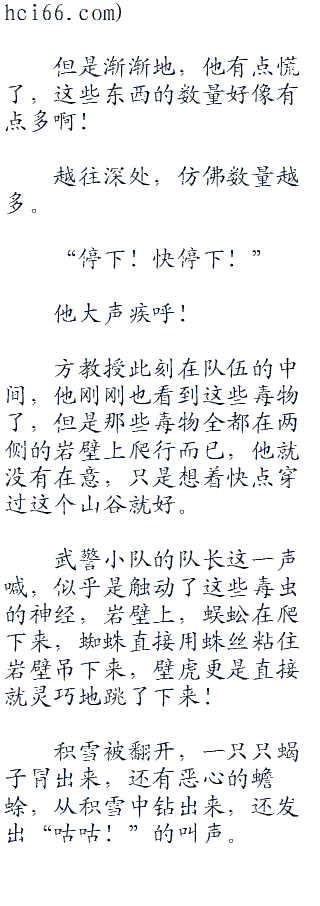 hci66.com)
但是渐渐地，他有点慌
了，这些东西的数量好像有
点多啊！
越往深处，仿佛数量越
多。
“停下！快停下！”
他大声疾呼！
方教授此刻在队伍的中
间，他刚刚也看到这些毒物
了，但是那些毒物全都在两
侧的岩壁上爬行而已，他就
没有在意，只是想着快点穿
过这个山谷就好。
武警小队的队长这一声
喊，似乎是触动了这些毒虫
的神经，岩壁上，蜈蚣在爬
下来，蜘蛛直接用蛛丝粘住
岩壁吊下来，壁虎更是直接
就灵巧地跳了下来！
积雪被翻开，一只只蝎
子冒出来，还有恶心的蟾
蜍，从积雪中钻出来，还发
出“咕咕！”的叫声。